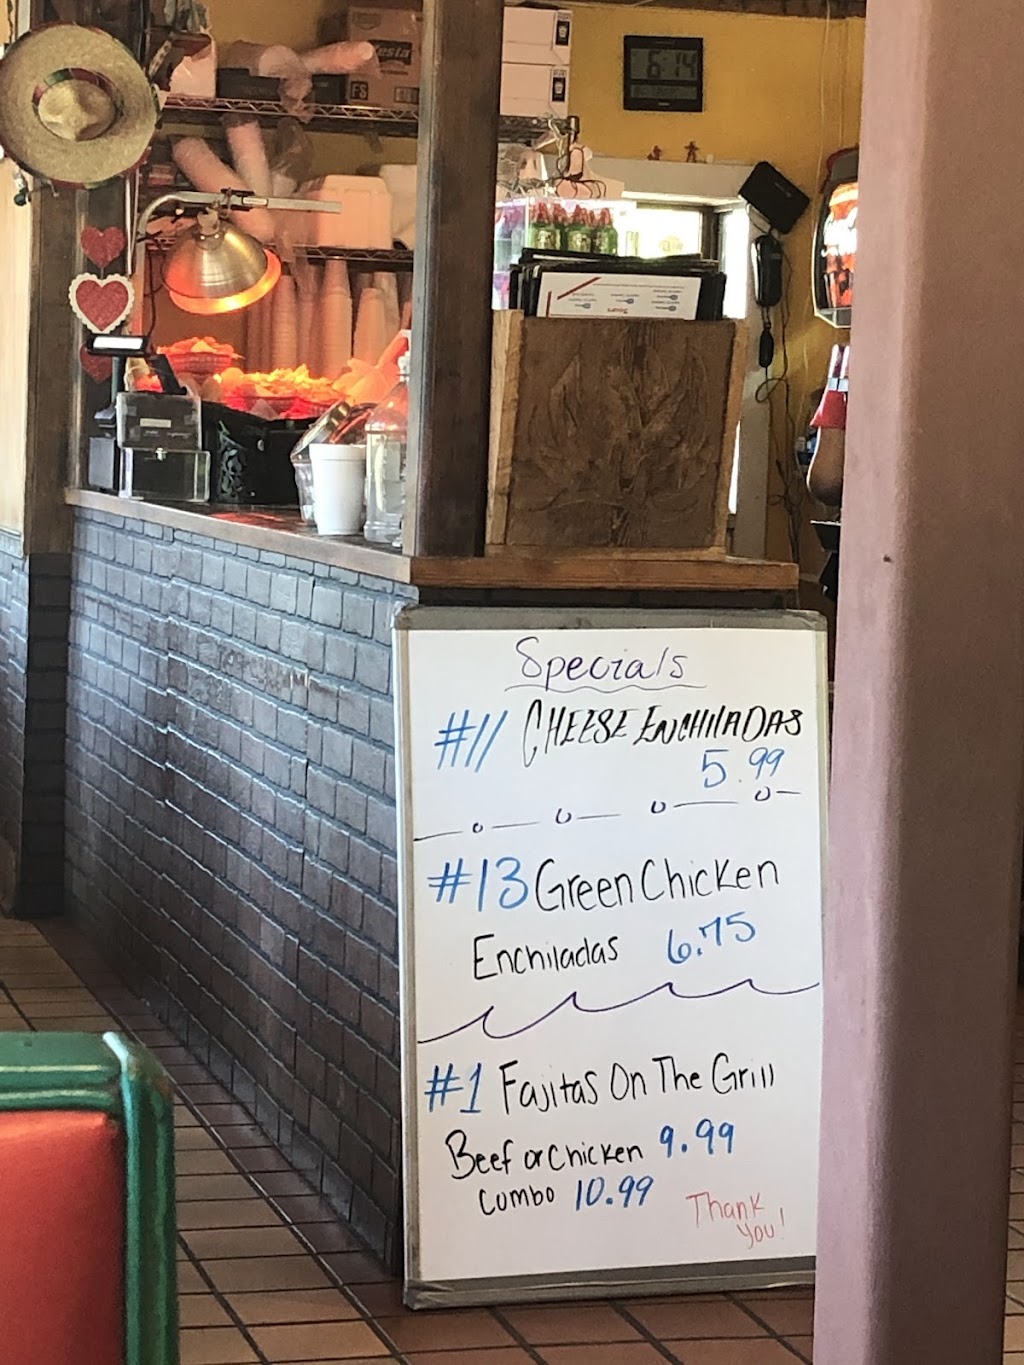 esta
FS
6:14
Specials
#11 CHEESE ENCHILADAS
5.99
#13 Green Chicken
Enchiladas 6.75
#1 Fajitas On The Grill
Beef or Chicken 9.99
Combo 10.99
Thank
you!